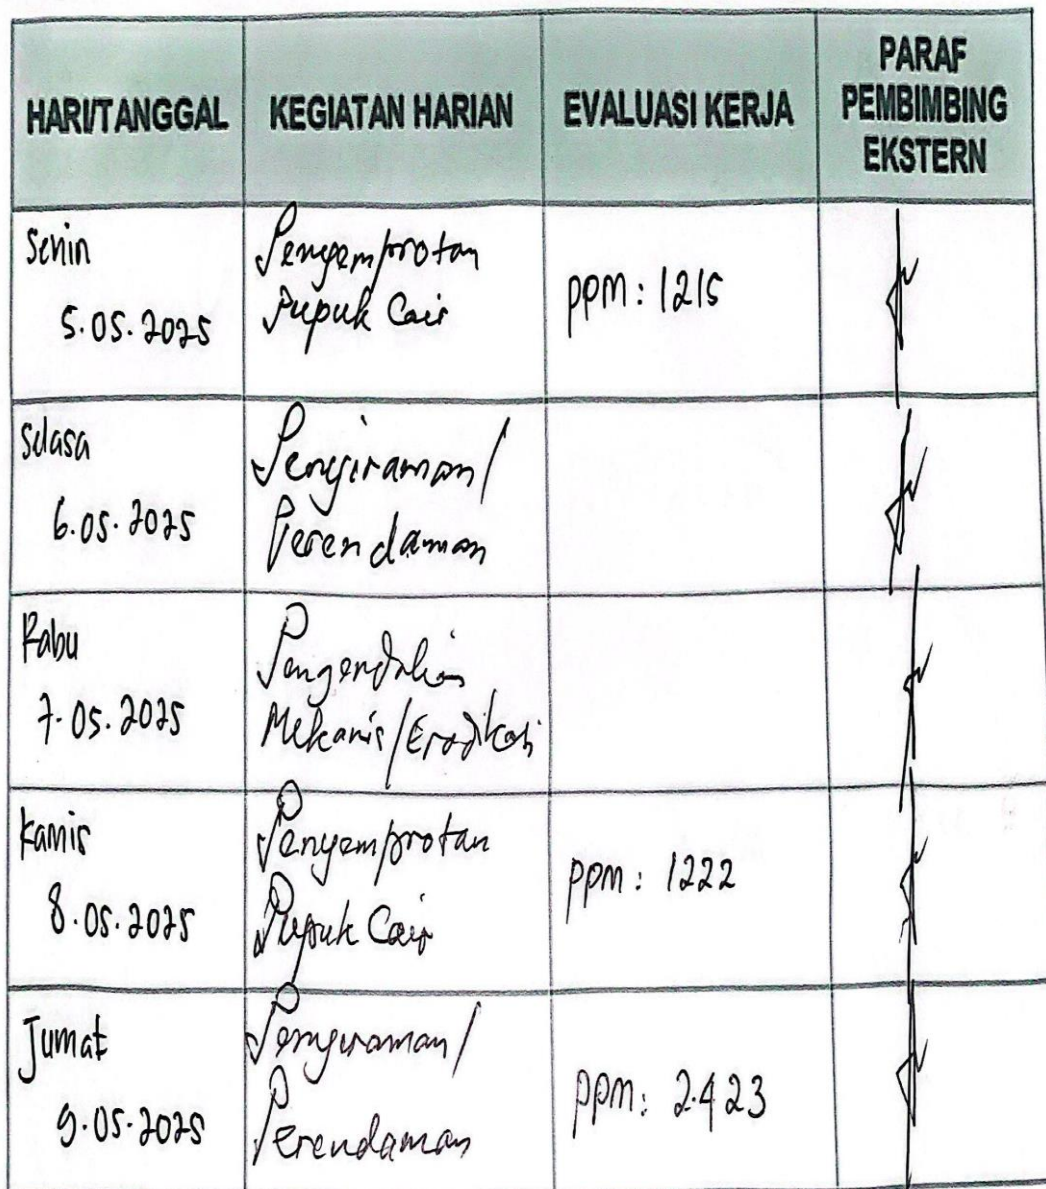 HARI/TANGGAL KEGIATAN HARIAN EVALUASI KERJA PARAF PEMBIMBING EKSTERN
Senin
5.05.2025
Penyemprotan
Pupuk Cair
ppm: 1215
Selasa
6.05.2025
Penyiraman/
Perendaman
Rabu
7.05.2025
Pengendalian
Mekanis/Eradikasi
Kamis
8.05.2025
Penyemprotan
Pupuk Cair
ppm: 1222
Jumat
9.05.2025
Penyiraman/
Perendaman
ppm: 2.423